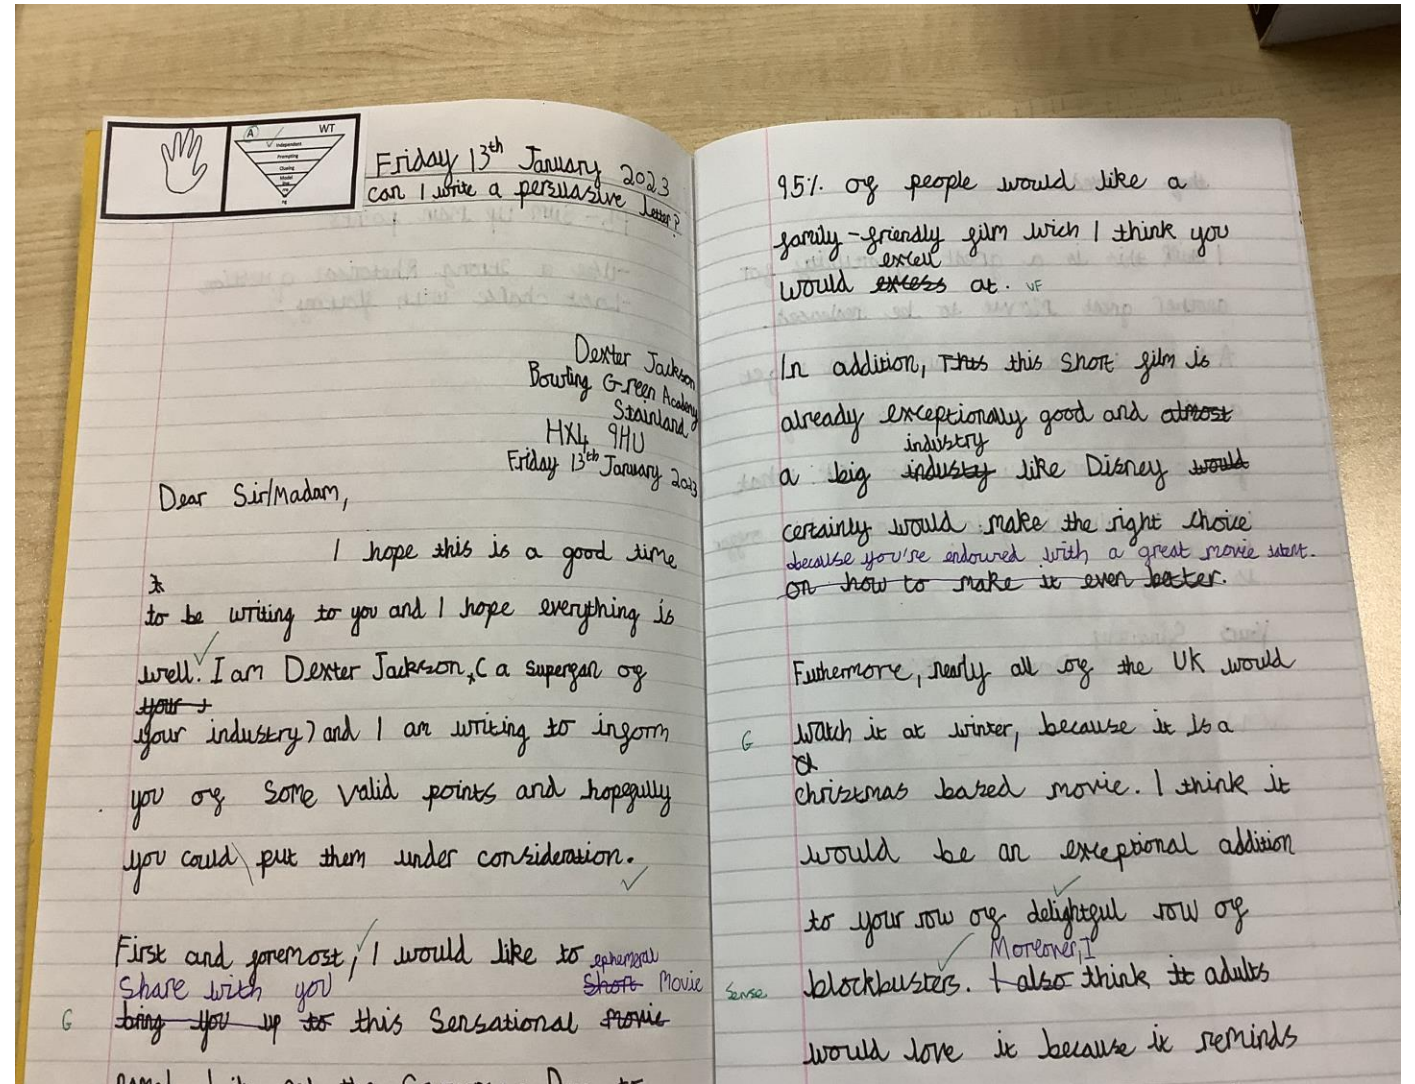 A
WT
Independent
Prompting
Clueing
Model
Friday 13th January 2023
can I write a persuasive letter?
Dexter Jackson
Bowling Green Academy
Stainland
HX4 9HU
Friday 13th January 2023
Dear Sir/Madam,
I hope this is a good time
to be writing to you and I hope everything is
well. I am Dexter Jackson, (a superfan of
your
your industry) and I am writing to inform
you of some valid points and hopefully
you could put them under consideration.
First and foremost, I would like to ephemeral
share with you short Movie
G bring you up to this sensational movie
95% of people would like a
family-friendly film wich I think you
excell
would excess at. VF
In addition, this this short film is
already exceptionally good and almost
industry
a big industy like Disney would
certainly would make the right choice
because you're endoured with a great movie
on how to make it even better.
Futhermore, nearly all of the UK would
G watch it at winter, because it is a
christmas based movie. I think it
would be an exceptional addition
to your row of delightful row of
Moreover, I
Sense blockbusters. I also think it adults
would love it because it reminds